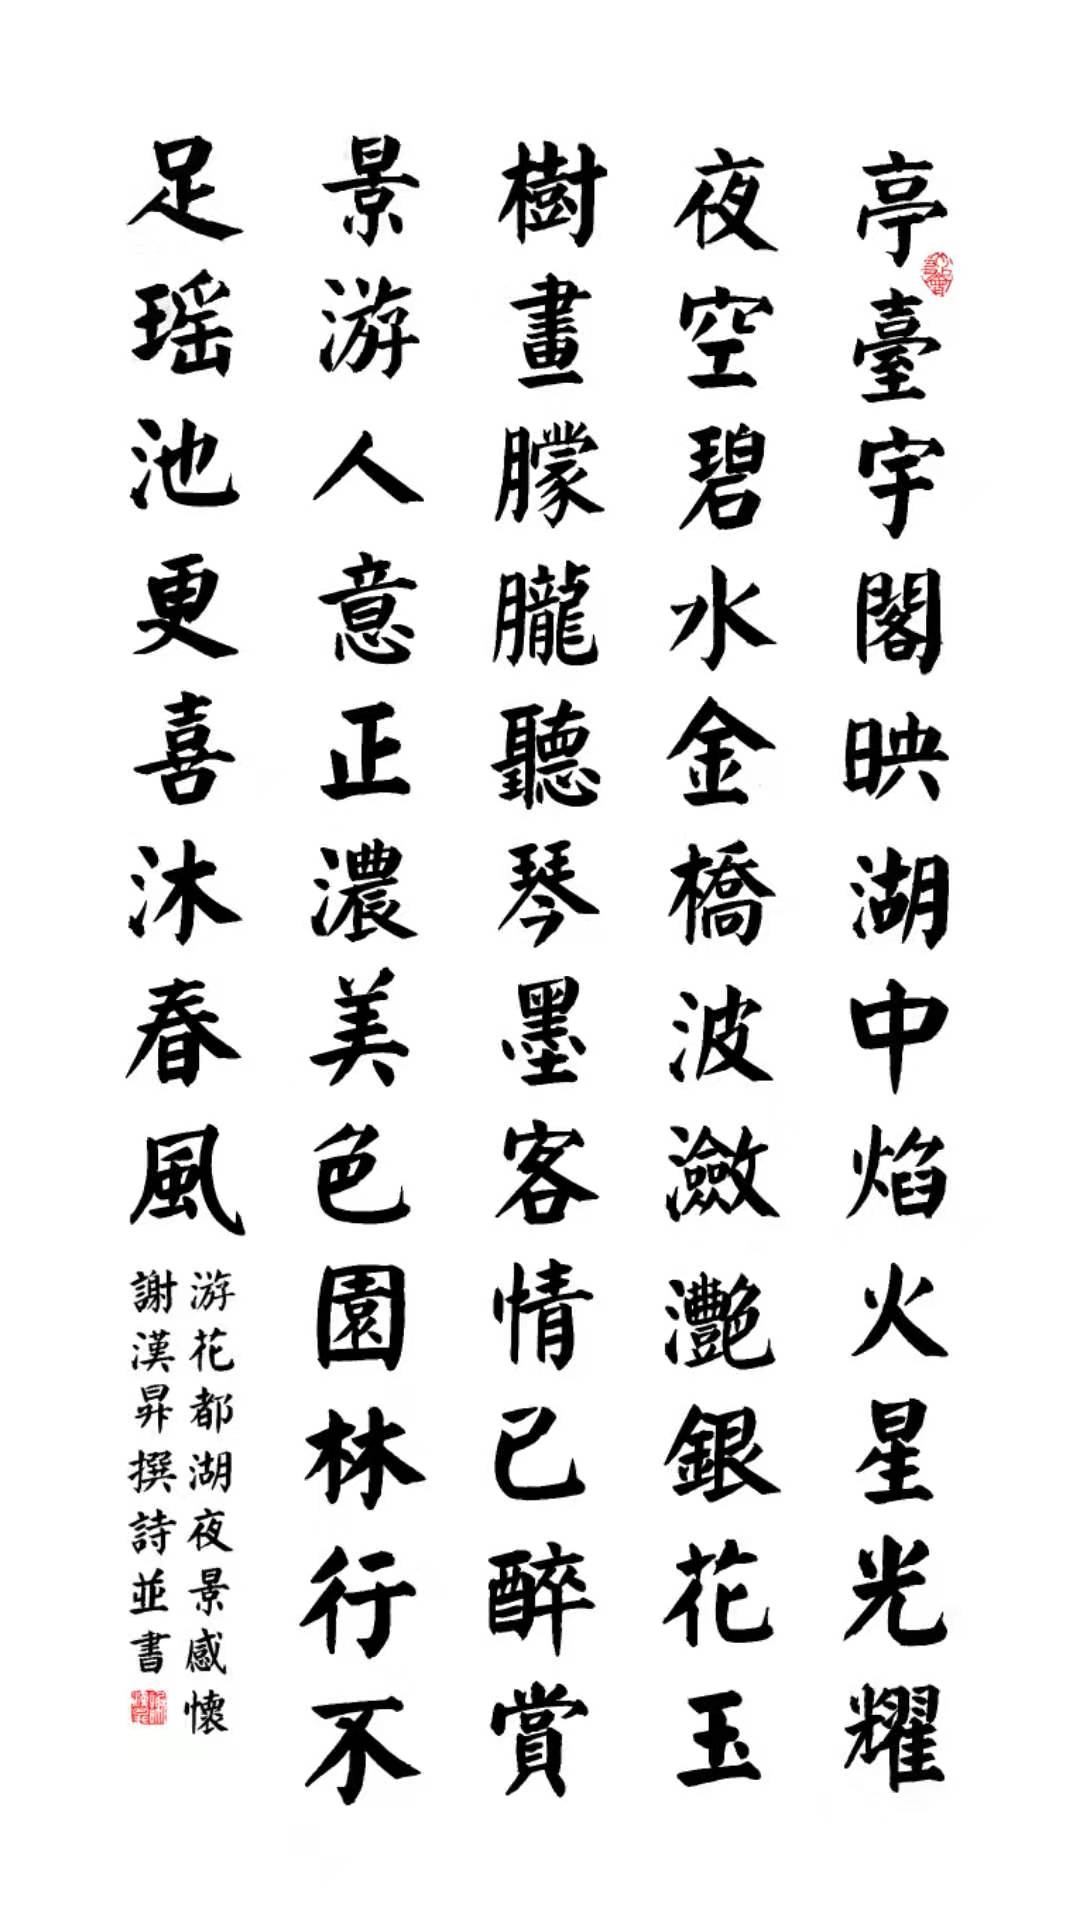 亭臺宇閣映湖中焰火星光耀
夜空碧水金橋波瀲灩銀花玉
樹畫朦朧聽琴墨客情已醉賞
景游人意正濃美色園林行不
足瑶池更喜沐春風
游花都湖夜景感懷
謝漢昇撰詩並書